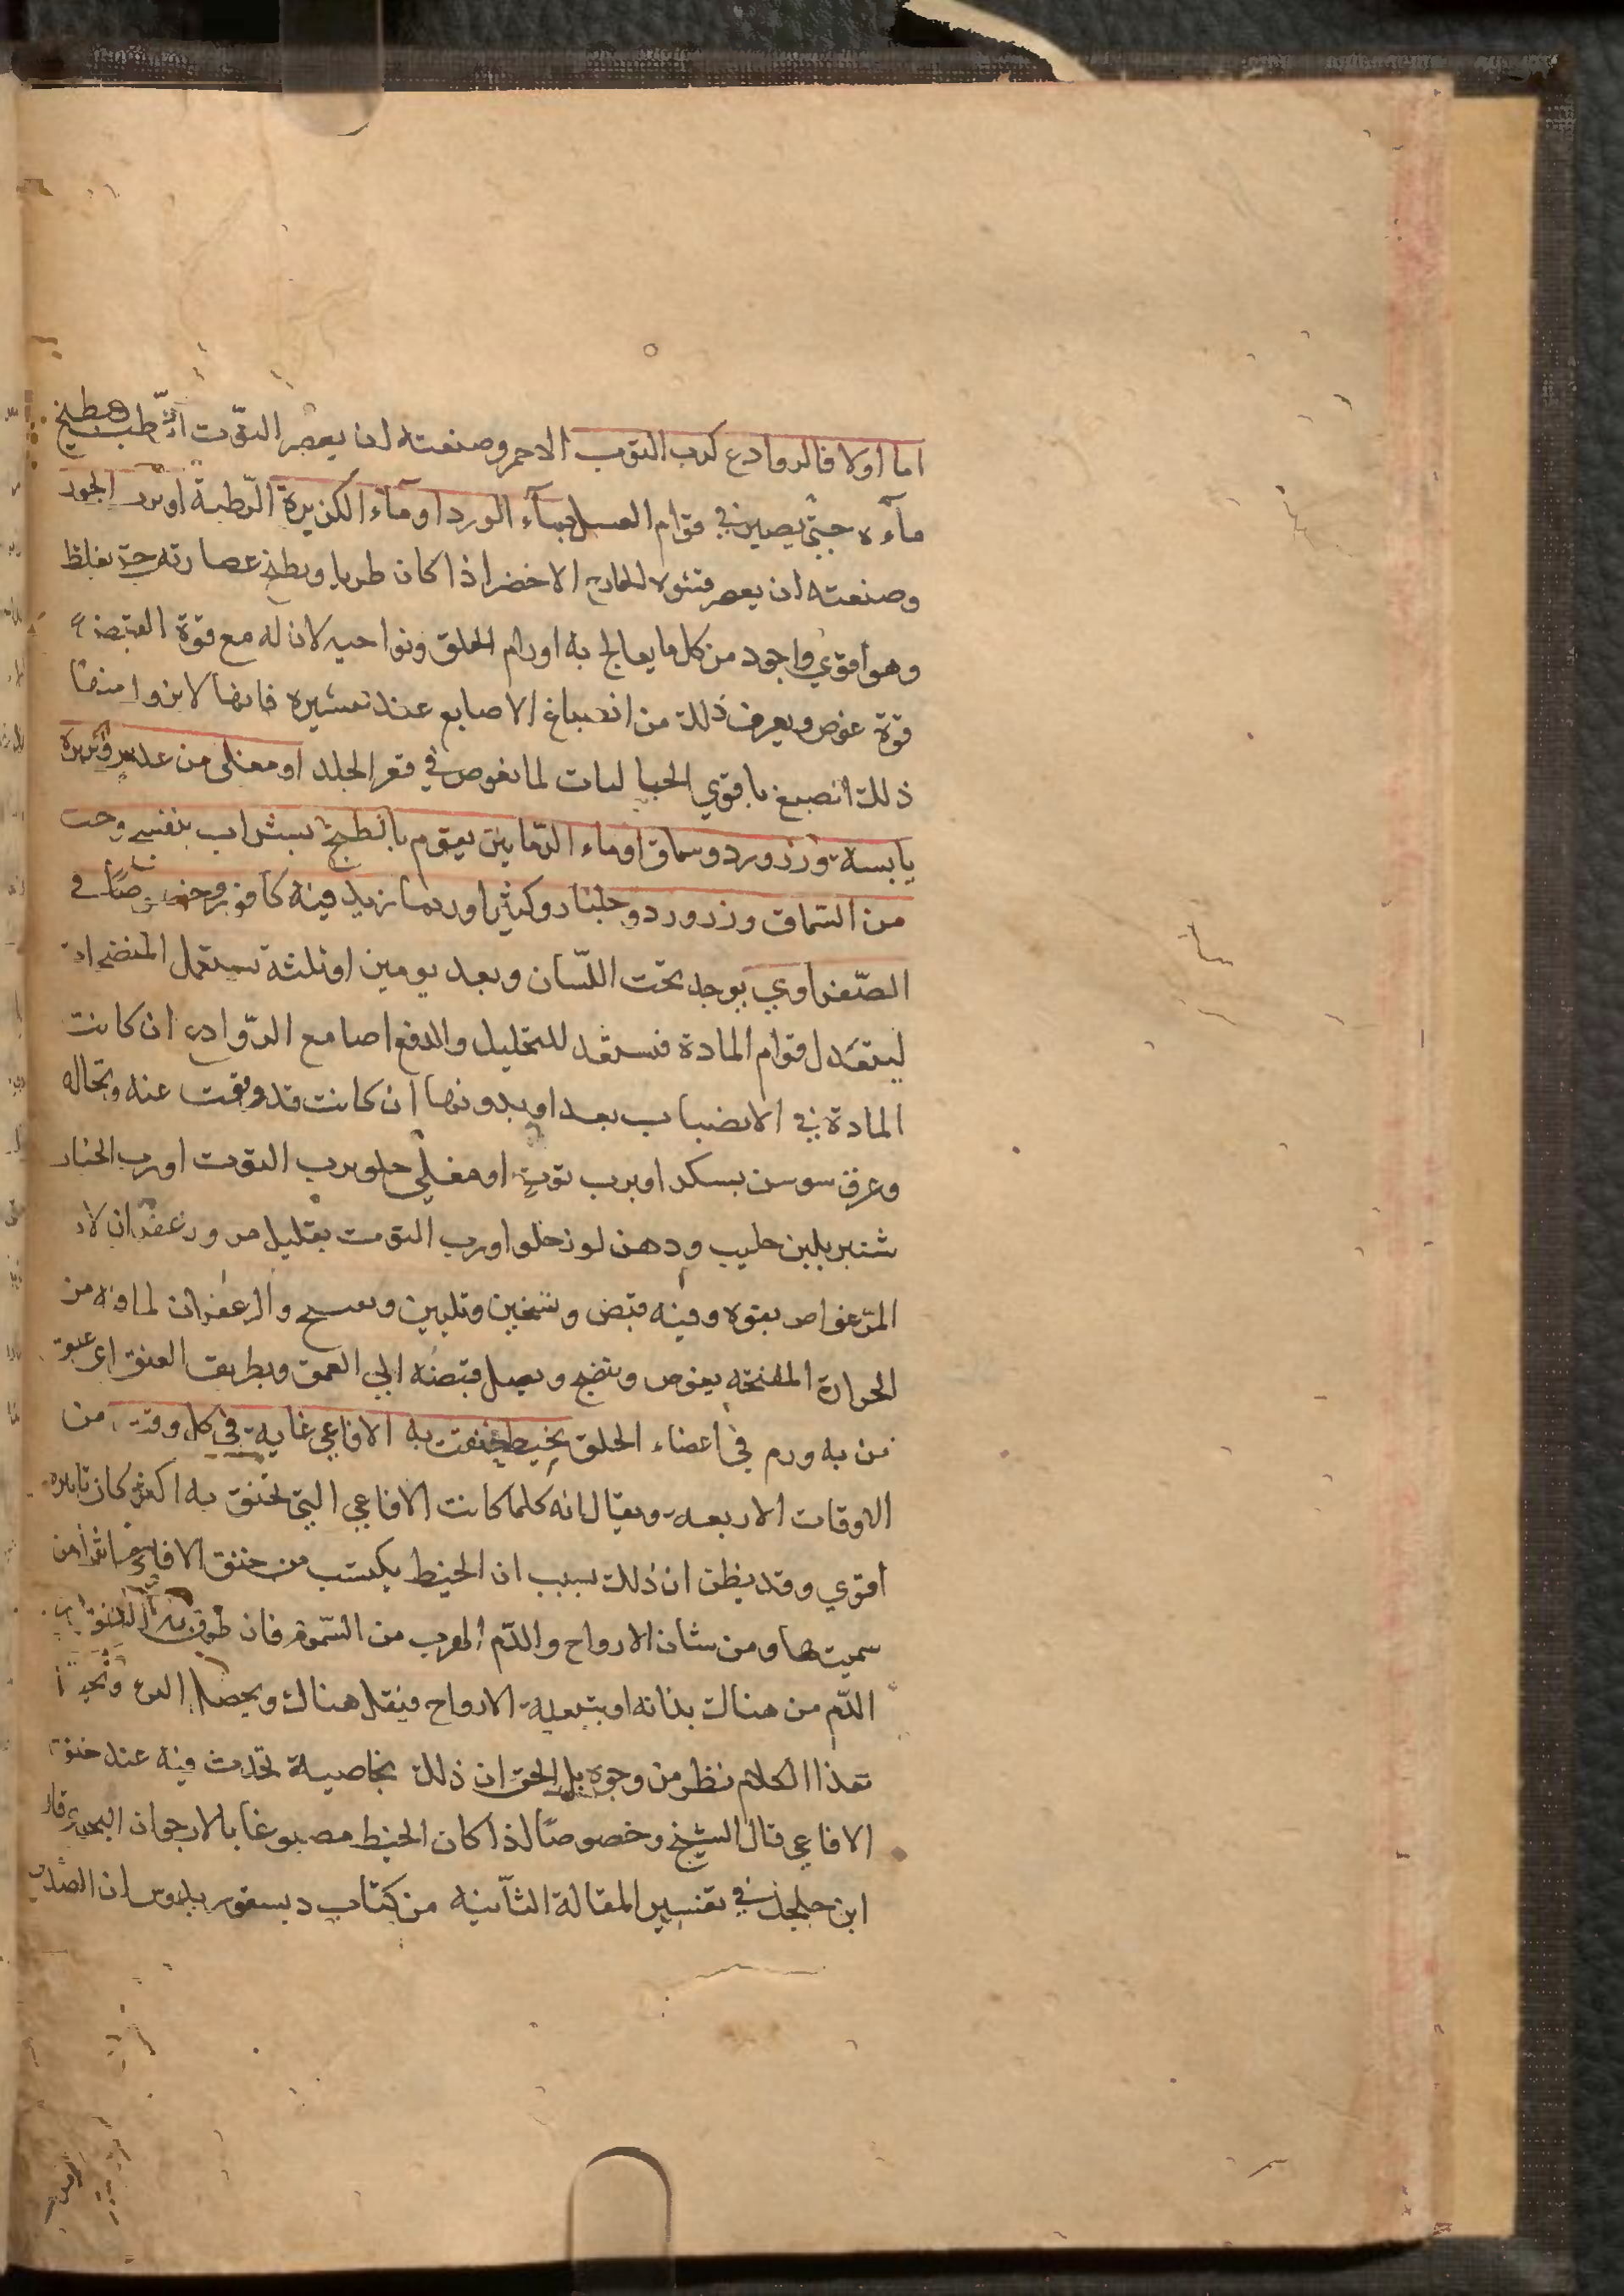 اما اولا فالروادع كرب التوت الاحمر وصنعته ان يعصر التوت ويطبخ
ماءه حتى يصير في قوام العسل بماء الورد او ماء الكزبرة الرطبة او برب الجوز
وصنعته ان يعصر قشوره الخارج الاخضر اذا كان طريا ويطبخ عصارته حتى يغلظ
وهو اقوي واجود من كل ما يعالج به اورام الحلق ونواحيه لان له مع قوة القبض
قوة غوص ويعرف ذلك من انصباغ الاصابع عند تقشيره فانها لا
ذلك انصبغ باقوي لما يغوص في قعر الجلد او مغلى من عدس وكزبرة
يابسة وزرورد وسماق او ماء الرمانين يقوم بالطبخ بشراب بنفسج وحب
من السماق وزرورد وجلنار وكثيرا وربما زيد فيه كافور وخصوصا في
الصفراوي يوجد تحت اللسان وبعد يومين او ثلثة تستعمل المنضجات
ليتعدل قوام المادة فتستعد للتحليل والدفع اما مع الروادع ان كانت
المادة في الانصباب بعد او بدونها ان كانت قد وقفت عنه ونخاله
وعرق سوسن بسكر او برب توت او مغلى حلو برب التوت او رب الخيار
شنبر بلبن حليب ودهن لوز حلو او رب التوت بقليل مر وزعفران لان
المر غواص بقوة وفيه قبض وتسخين وتليين والزعفران لما فيه من
الحرارة المفتحه يغوص وينضج ويصل قبضه الي العمق وبطريق العنق اي عنق
من به ورم في اعضاء الحلق بخيط خنقت به الافاعي غاية في كل وقت من
الاوقات الاربعه ويقال انه كلما كانت الافاعي التي تختنق به اكثر كان تاثيره
اقوي وقد يظن ان ذلك بسبب ان الخيط يكتسب من خنق الافاعي اثرا من
سميتها ومن شان الارواح والدم الهرب من السموم فان طوق به العنق
الدم من هناك بذاته او بتبعية الارواح فيقل هناك ويحصل
هذا الكلام نظر من وجوه بل الحق ان ذلك بخاصية تحدث فيه عند خنق
الافاعي قال الشيخ وخصوصا اذا كان الخيط مصبوغا بالارجوان البحري قال
ابن جلجل في تفسير المقالة الثانيه من كتاب ديسقوريدوس ان